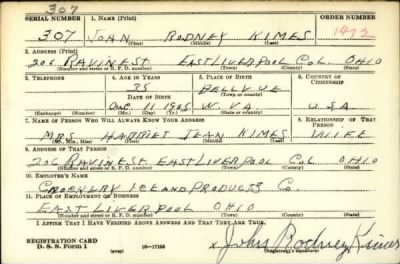 307
SERIAL NUMBER 1. NAME (Print) ORDER NUMBER
307 JOHN RODNEY KIMES 1473
(First) (Middle) (Last)
2. ADDRESS (Print)
206 RAVINE ST. EAST LIVERPOOL COL. OHIO
(Number and street or R. F. D. number) (Town) (County) (State)
3. TELEPHONE 4. AGE IN YEARS 5. PLACE OF BIRTH 6. COUNTRY OF CITIZENSHIP
35 BELLVUE
DATE OF BIRTH (Town or county)
DEC. 11 1905 W. VA U S A
(Exchange) (Number) (Mo.) (Day) (Yr.) (State or country)
7. NAME OF PERSON WHO WILL ALWAYS KNOW YOUR ADDRESS 8. RELATIONSHIP OF THAT PERSON
MRS HARRIET JEAN KIMES WIFE
(Mr., Mrs., Miss) (First) (Middle) (Last)
9. ADDRESS OF THAT PERSON
206 RAVINE ST. EAST LIVERPOOL COL OHIO
(Number and street or R. F. D. number) (Town) (County) (State)
10. EMPLOYER'S NAME
CROCKERY ICE AND PRODUCTS CO.
11. PLACE OF EMPLOYMENT OR BUSINESS
EAST LIVERPOOL OHIO
(Number and street or R. F. D. number) (Town) (County) (State)
I AFFIRM THAT I HAVE VERIFIED ABOVE ANSWERS AND THAT THEY ARE TRUE.
REGISTRATION CARD
D. S. S. Form 1 (over) 16—17105 x John Rodney Kimes
(Registrant's signature)